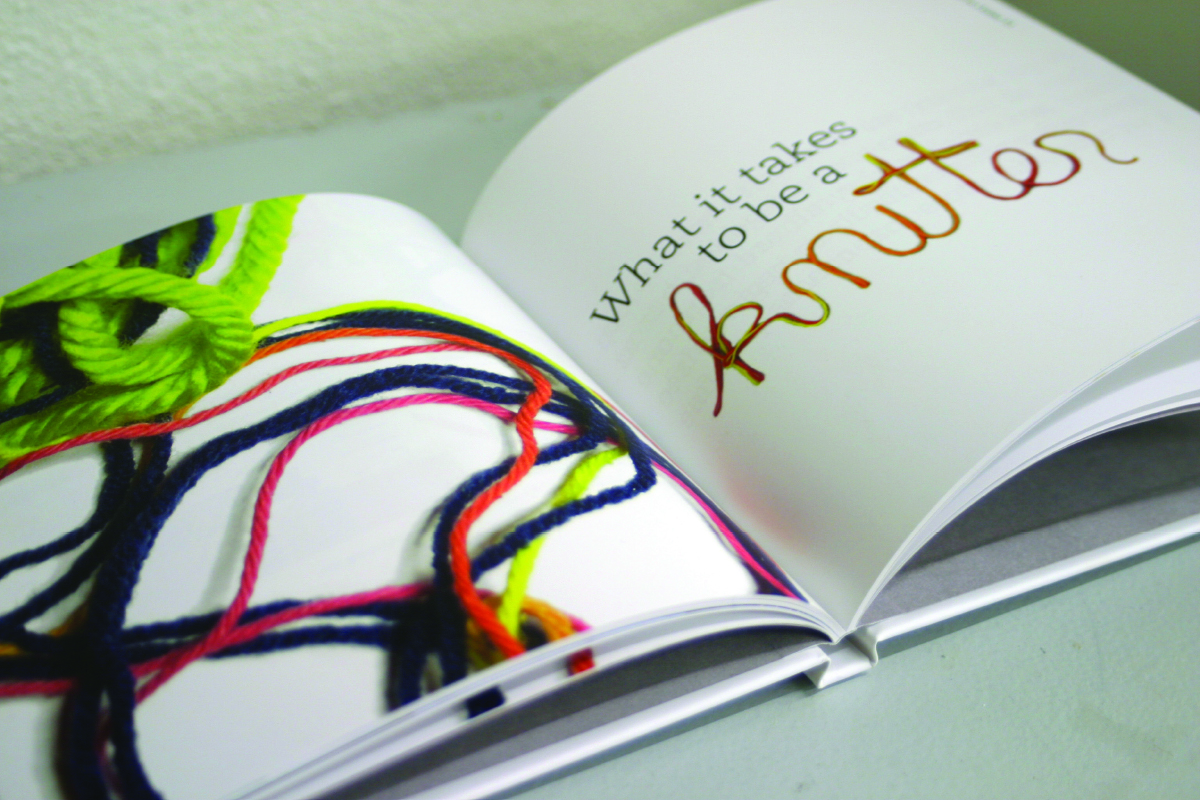 what it takes
to be a
knitter